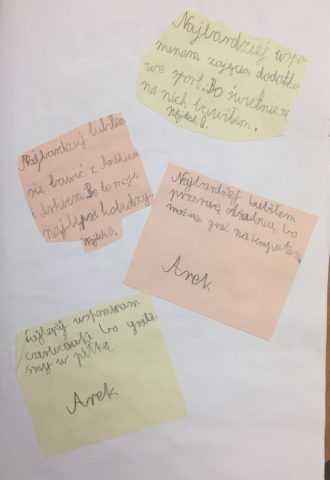 Najbardziej wspo
minam zajęcia dodatko
we sport. Bo świetnie się
na nich bawiłem.
Najbardziej lubiłem
się bawić z
i Bo to moji
najlepsi koledzy.
Najbardziej lubiłem
przerwę obiadową bo
można grać na komputerze.
Arek
Najlepiej wspominam
czwartówki bo grali
śmy w piłkę
Arek